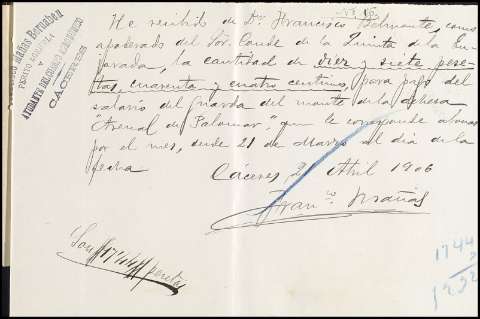 Francisco Mañas Bernabeu
PERITO AGRICOLA
Y
AYUDANTE DEL CUERPO AGRONOMICO
CACERES
He recibido de Dn. Francisco Belmonte, como
apoderado del Sor. Conde de la Quinta de la En-
jarada, la cantidad de diez y siete pese-
tas, cuarenta y cuatro centimos, para pago del
salario del Guarda del monte de la dehesa
"Arenal de Palomar", que le corresponde abonar
por el mes, desde 21 de Marzo al dia de la
fecha
Cáceres, 21 Abril 1906
Fran.co Mañas
Son 17'44 pesetas
1744